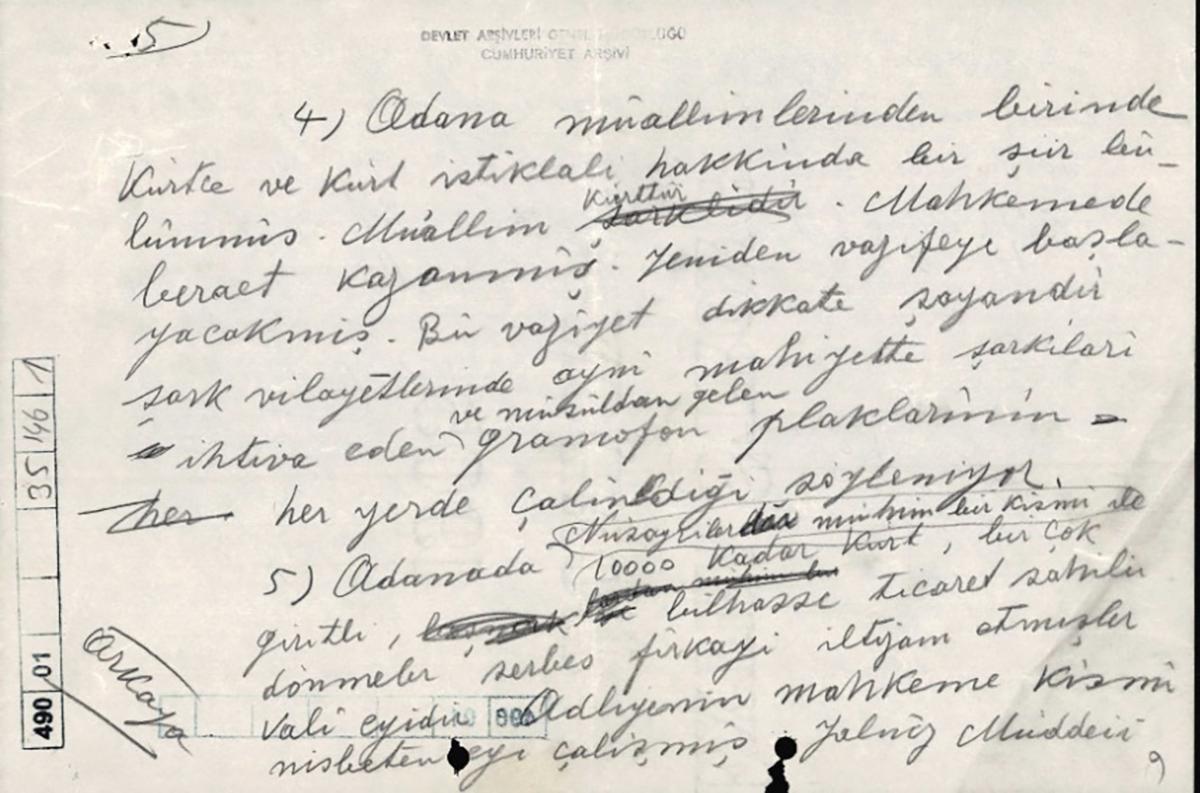 5
DEVLET ARŞİVLERİ GENEL MÜDÜRLÜĞÜ
CUMHURİYET ARŞİVİ
4) Adana müallimlerinden birinde
Kürtce ve Kürt istiklali hakkinda bir şiir bu-
lunmuş. Müallim Kürttür şarklidir. Mahkemede
beraet kazanmiş. Yeniden vazifeye başla-
yacakmiş. Bu vaziyet dikkate şayandir
şark vilayetlerinde ayni mahiyette şarkilari
ve musuldan gelen
ihtiva eden gramofon plaklarinin
her her yerde çalindiği söyleniyor.
Nusayrilerden mühim bir kismi ile
5) Adanada 10000 kadar Kürt, bir çok
giritli, bilhassa ticaret sahibi
dönmeler serbes firkayi iltizam etmişler
Vali eyidir Adliyenin mahkeme kismi
nisbeten eyi çalişmiş Yalniz Müddeii
arkaya
490 01 35 146 1
9